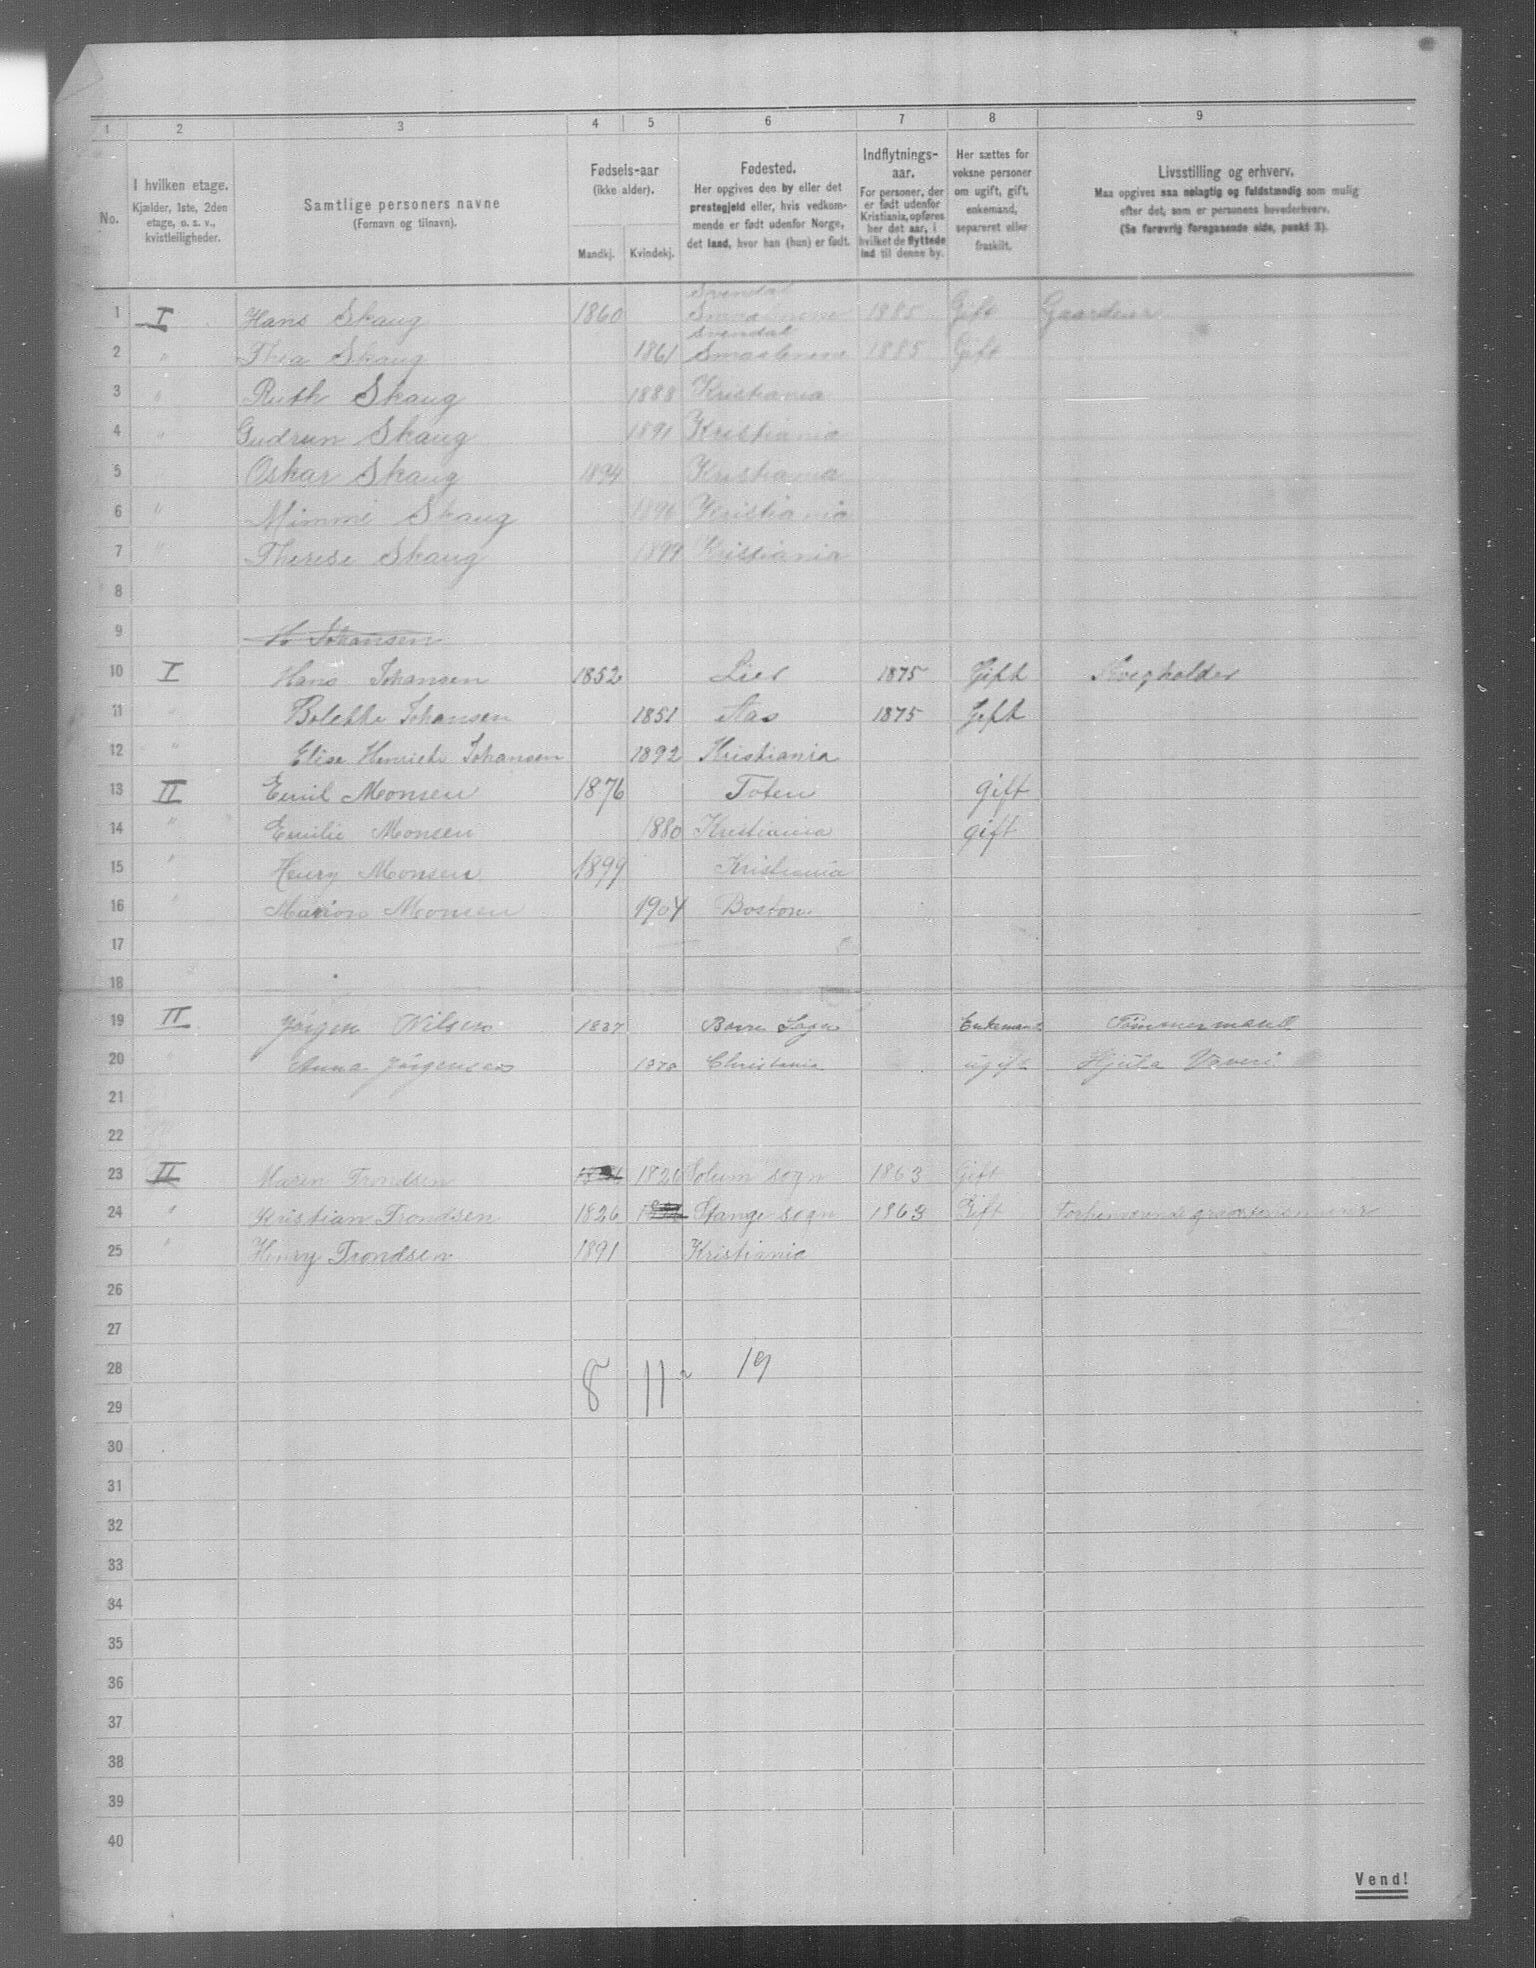 1 2 3 4 5 6 7 8 9
No.
I hvilken etage.
Kjælder, 1ste, 2den
etage, o. s. v.,
kvistleiligheder.
Samtlige personers navne
(Fornavn og tilnavn).
Fødsels-aar
(ikke alder).
Mandkj. Kvindekj.
Fødested.
Her opgives den by eller det
prestegjeld eller, hvis vedkom-
mende er født udenfor Norge,
det land, hvor han (hun) er født.
Indflytnings-
aar.
For personer, der
er født udenfor
Kristiania, opføres
her det aar, i
hvilket de flyttede
ind til denne by.
Her sættes for
voksne personer
om ugift, gift,
enkemand,
separeret eller
fraskilt.
Livsstilling og erhverv.
Maa opgives saa nøiagtig og fuldstændig som mulig
efter det, som er personens hovederhverv.
(Se forøvrig foregaaende side, punkt 3).
1 I Hans Skaug 1860 Svendal 1885 Gift
2 " Thea Skaug 1861 Svendal Smaalenene 1885 Gift
3 " Ruth Skaug 1888 Kristiania
4 " Gudrun Skaug 1891 Kristiania
5 Oskar Skaug 1894 Kristiania
6 " Mimmi Skaug 1896 Kristiania
7 " Therese Skaug 1899 Kristiania
8
9 H Johansen
10 I Hans Johansen 1852 Lier 1875 Gift
11 " Bolette Johansen 1851 Aas 1875 Gift
12 " Elise Henriete Johansen 1892 Kristiania
13 II Emil Monsen 1876 Toten gift
14 " Emilie Monsen 1880 Kristiania gift
15 " Henry Monsen 1899 Kristiania
16 " Marion Monsen 1904 Boston
17
18
19 II Jörgen Nilsen 1837 Enkemand
20 " Anna Jörgensen 1878 Christania ugift Hjula Væveri
21
22
23 II Maren Trondsen 1826 Solum sogn 1863 Gift
24 " Kristian Trondsen 1826 Stange sogn 1863 Gift
25 " Henry Trondsen 1891 Kristiania
26
27
28 8 11 19
29
30
31
32
33
34
35
36
37
38
39
40
Vend!